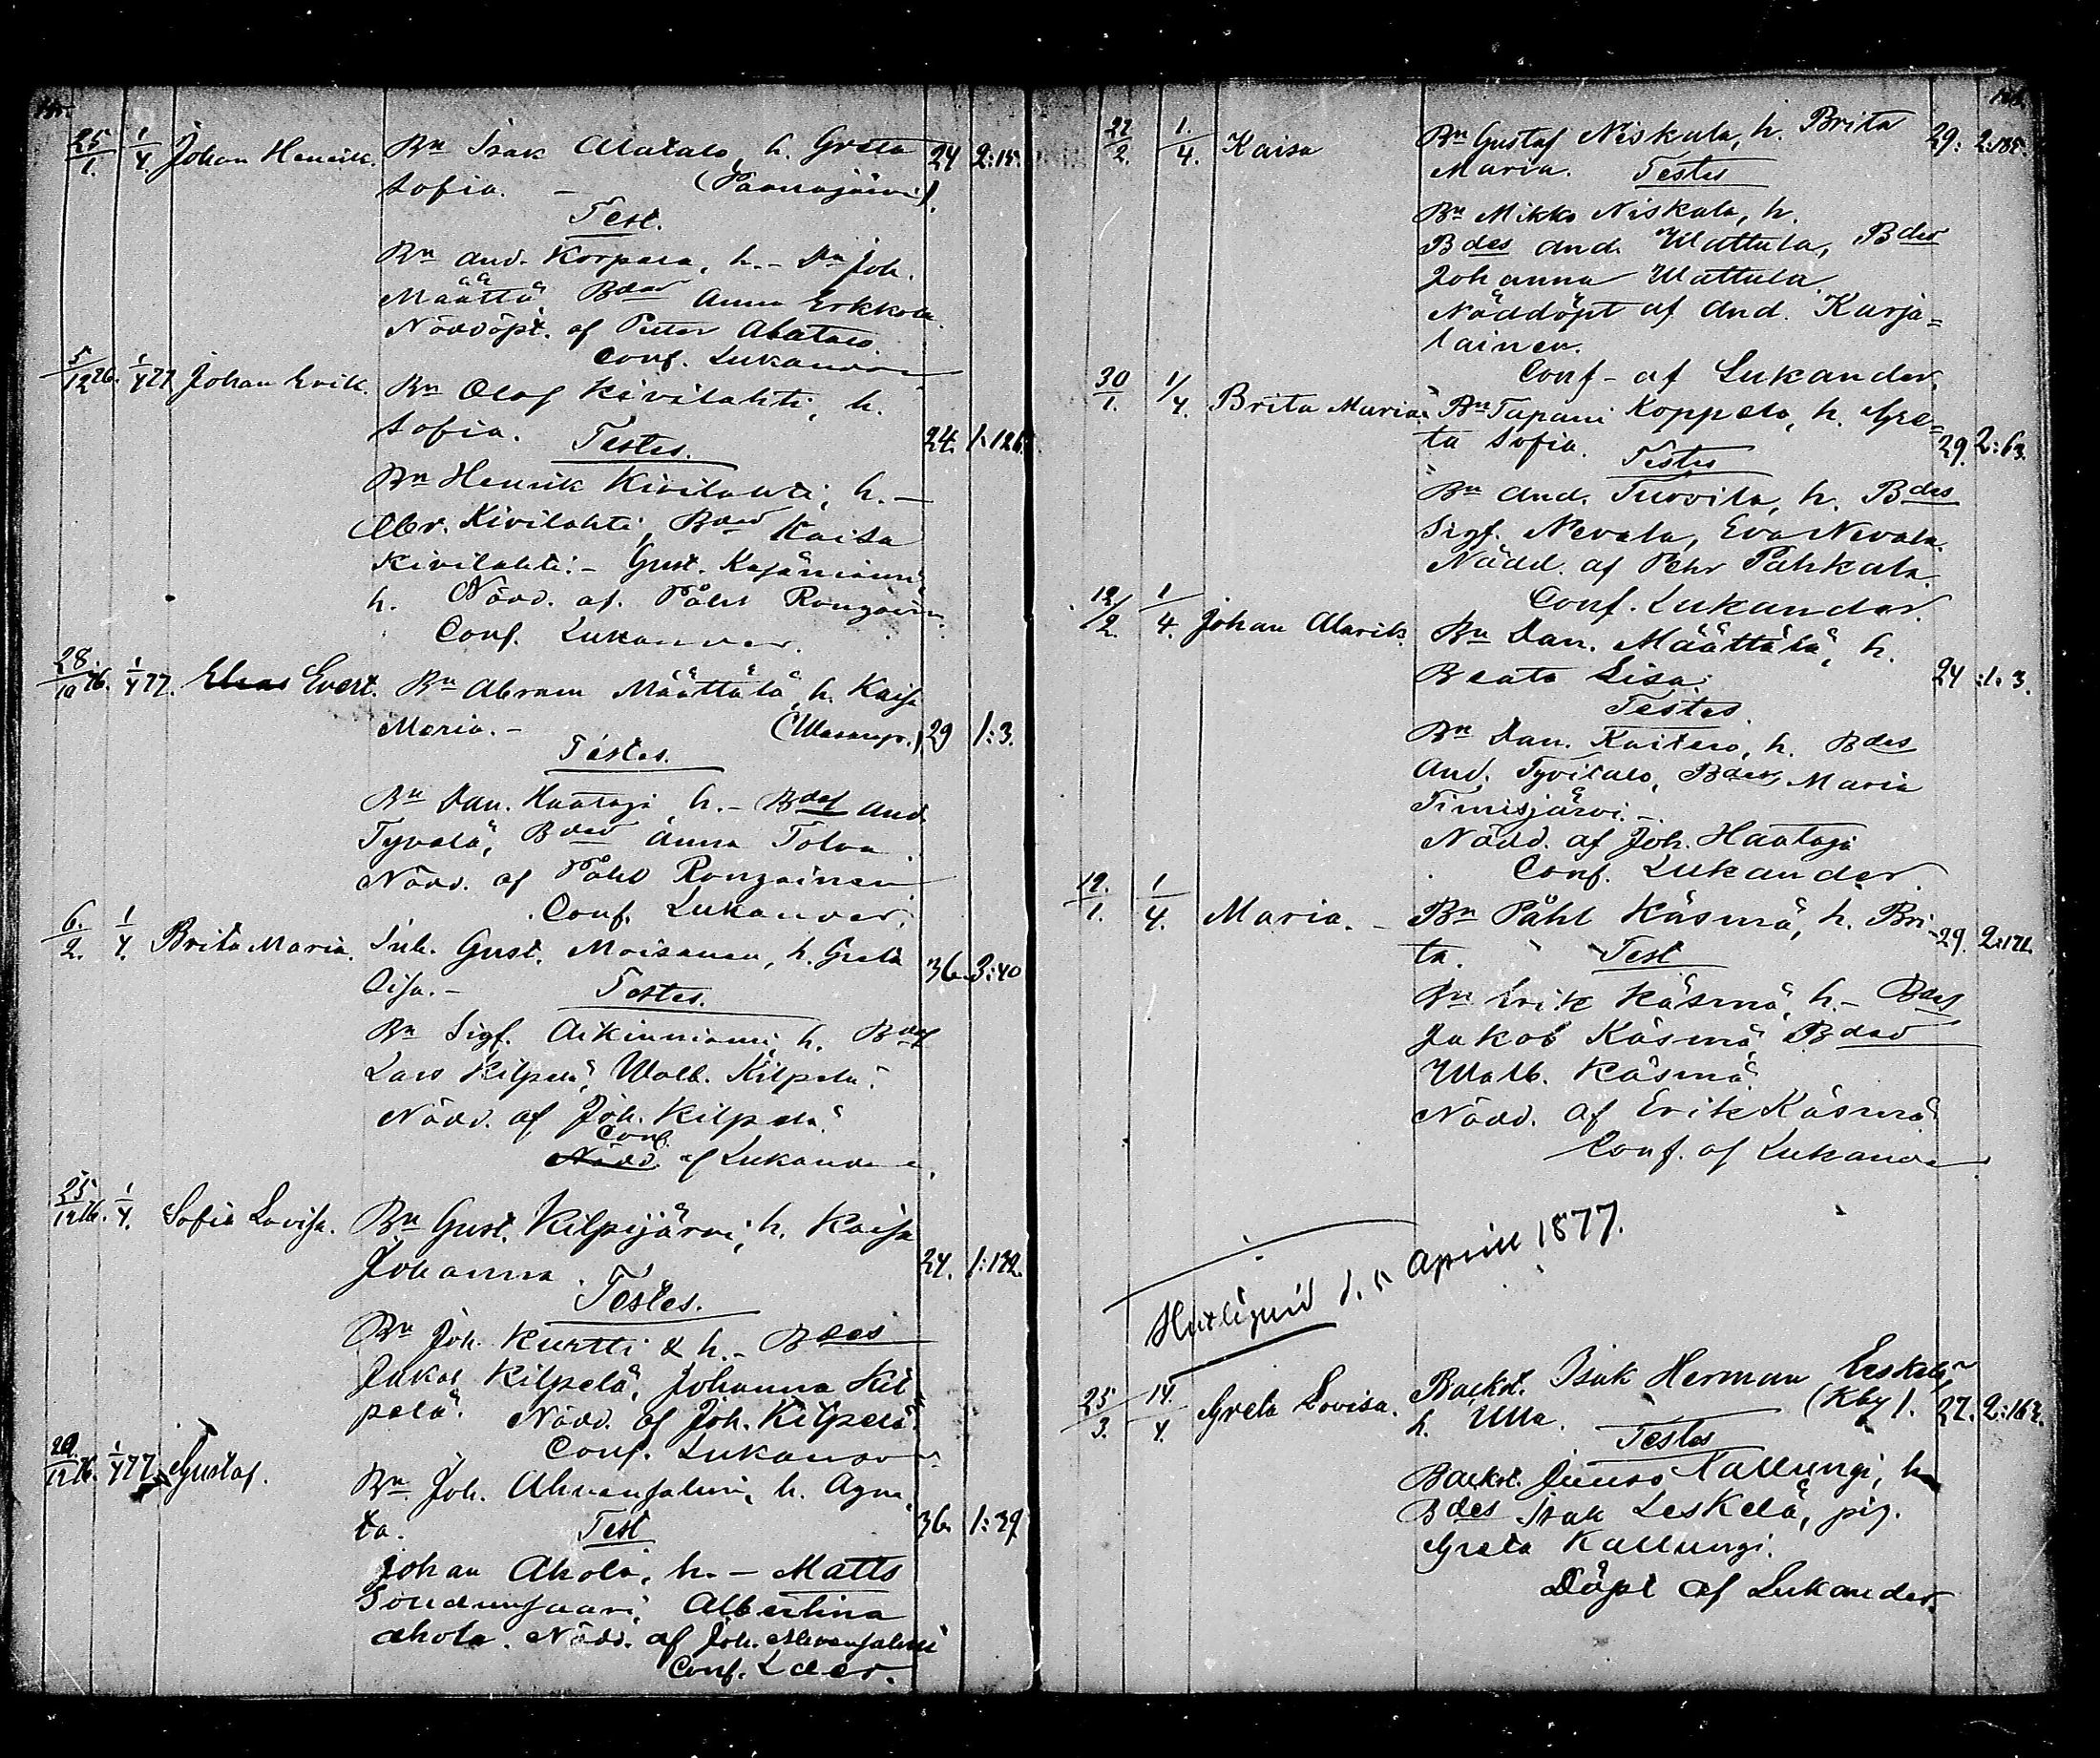 25/1. 1/4. Johan Henrik. Bn Isak Alatalo, h. Greta 24 2:15.
Sofia. - (Paanajärvi).
Test.
Bn And. Korpela, h. - Dn Joh.
Määttä Bdar Anna Erkkola.
Nöddöpt. af Petter Alatalo.
Conf. Lukander
5/12 76. 1/4 77 Johan Erik. Bn Olof Kivilahti, h.
Sofia. Testes. 24. 1:126.
Bn Henrik Kivilahti, h. -
Abr. Kivilahti, Bdar Kaisa
Kivilahti. - Gust. Kajäniemi
h. Nödd. af. Påhl Rongain
Conf. Lukander.
28/10 76. 1/4 77. Elias Evert. Bn Abram Määttälä, h. Kaisa
Maria. - 29 1:3.
Testes.
Bn Dan. Haataja h. - Bdes And
Tyvelä, Bdar Anna Tolva
Nödd. af Påhl Rongainen
Conf. Lukander.
6./2. 1/4. Brita Maria. Inh. Gust. Moisanen, h. Greta 36. 3:40
Lisa. - Testes.
Bn Sigf. Aikinniemi, h. Bdes
Lars Kilpelä, Walb. Kilpelä.
Nödd. af Joh. Kilpelä.
Conf.
Nödd. af Lukander.
25/12 76. 1/4. Sofia Lovisa. Bn Gust. Kilpijärvi, h. Kaisa
Johanna. 24. 1:122.
Testes.
Bn Joh. Kurtti & h. - Bdes
Jakob Kilpelä, Johanna Kil=
pelä. Nödd. af Joh. Kilpelä.
Conf. Lukander
29./12 76. 1/4 77 Gustaf. Bn Joh. Ahvensalmi, h. Agne
ta. Test 36. 1:39
Johan Ahola, h. - Matts
Albertina
Ahola. Nödd. af Joh. Ahvensalmi
Conf. Lder.
22/2. 1./4. Kaisa Bn Gustaf Niskala, h. Brita 29: 2:185.
Maria. Testes
Bn Mikko Niskala, h.
Bdes And. Wattula, Bdar
Johanna Wattula.
Nöddöpt af And. Karja=
lainen.
Conf - af Lukander.
30/1. 1/4. Brita Maria. Bn Tapani Koppelo, h. Gre=
ta Sofia. 29. 2:63.
Testes
Bn And. Turvila, h. Bdes
Sigf. Nevala, Eva Nevala.
Nödd. af Pehr Pahkala.
Conf. Lukander.
12/2. 1/4. Johan Alarik. Bn Dan. Määttälä, h.
Beata Lisa. 24 :1:3.
Testes.
Bn Dan. Kaitero, h. Bdes
And. Tyvitalo, Bdar Maria
Timisjärvi. -
Nödd. af Joh. Haataja
Conf. Lukander.
19./1. 1/4. Maria. - Bn Påhl Käsmä, h. Bri- 29. 2:171.
ta. Test
Bn Erik Käsmä, h. - Bdes
Jakob Käsmä Bdar
Walb. Käsmä.
Nödd. af Erik Käsmä
Conf. af Lukander
d. 5 April 1877.
25/3. 14./4. Greta Lovisa. Backst. Isak Herman Leskelä,
h. Ulla. (Kby). 27. 2:162.
Testes
Backst. Juuso Kallungi, h
Bdes Isak Leskelä, pig.
Greta Kallungi.
Döpt af Lukander.